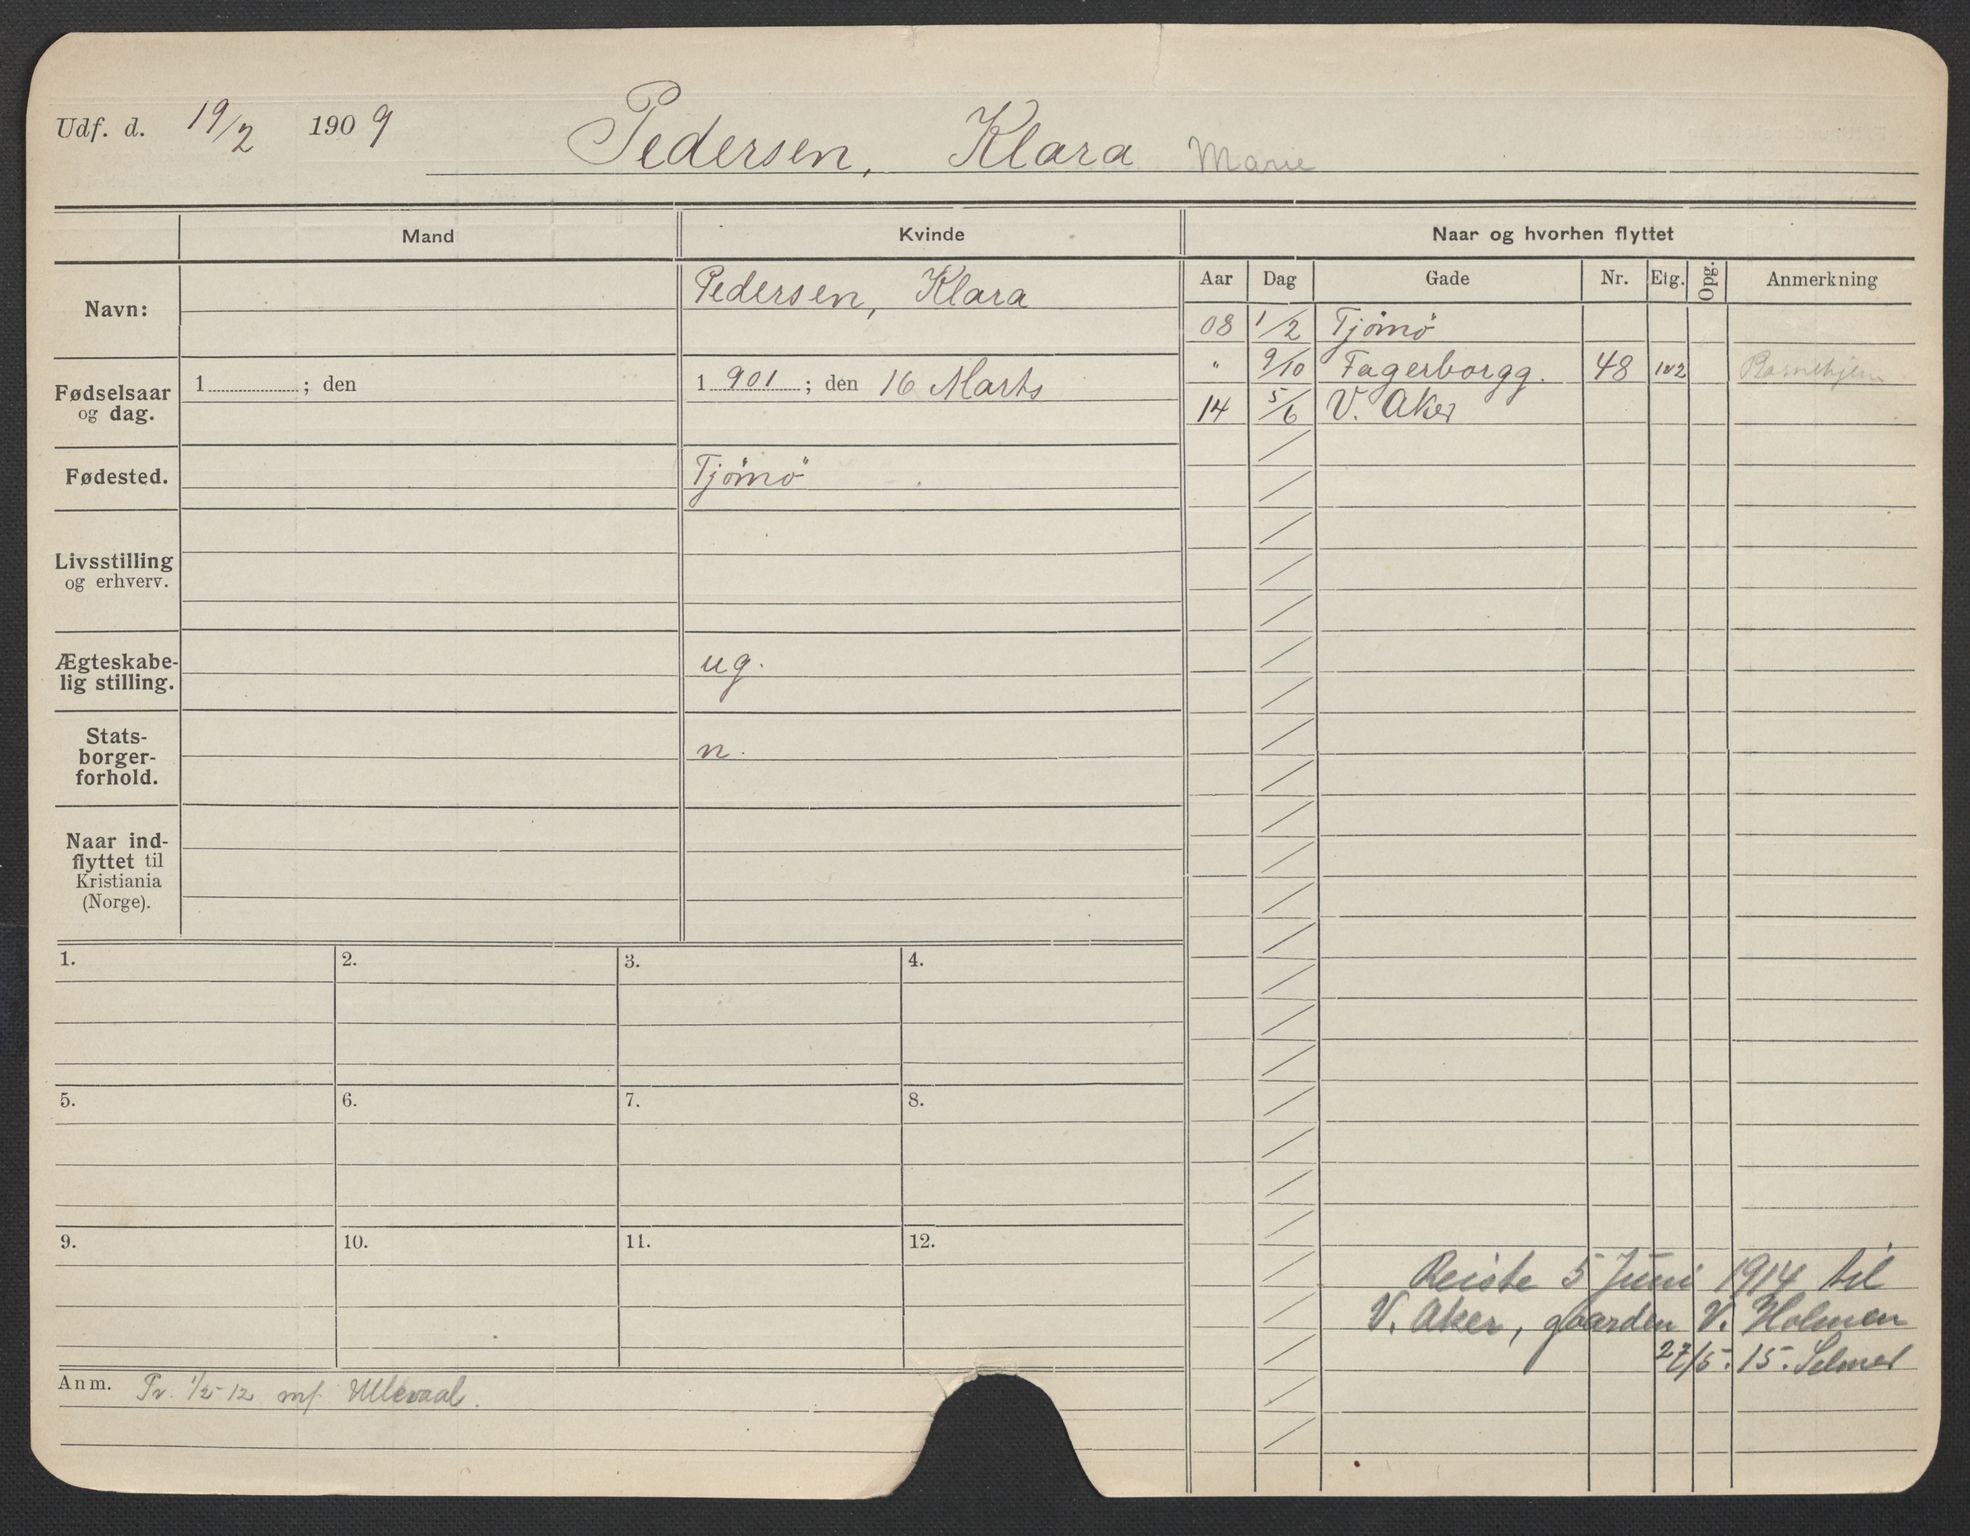 Udf. d. 19/2 1909 Pedersen, Klara Marie
Mand Kvinde Naar og hvorhen flyttet
Aar Dag Gade Nr. Etg. Opg. Anmerkning
Navn: Pedersen, Klara
08 1/2 Tjömö
" 9/10 Fagerborgg. 48 1v2 Barnehjem
14 5/6 V. Aker
Fødselsaar
og dag.
1 ; den
1 901 ; den 16 Marts
Fødested. Tjömö
Livsstilling
og erhverv.
Ægteskabe-
lig stilling.
ug.
Stats-
borger-
forhold.
n.
Naar ind-
flyttet til
Kristiania
(Norge).
1. 2. 3. 4.
5. 6. 7. 8.
9. 10. 11. 12.
Anm. Pr. 1/2-12 mf. Ullevaal.
Reiste 5 Juni 1914 til
V. Aker, gaarden V. Holmen
27/5. 15. Selmer